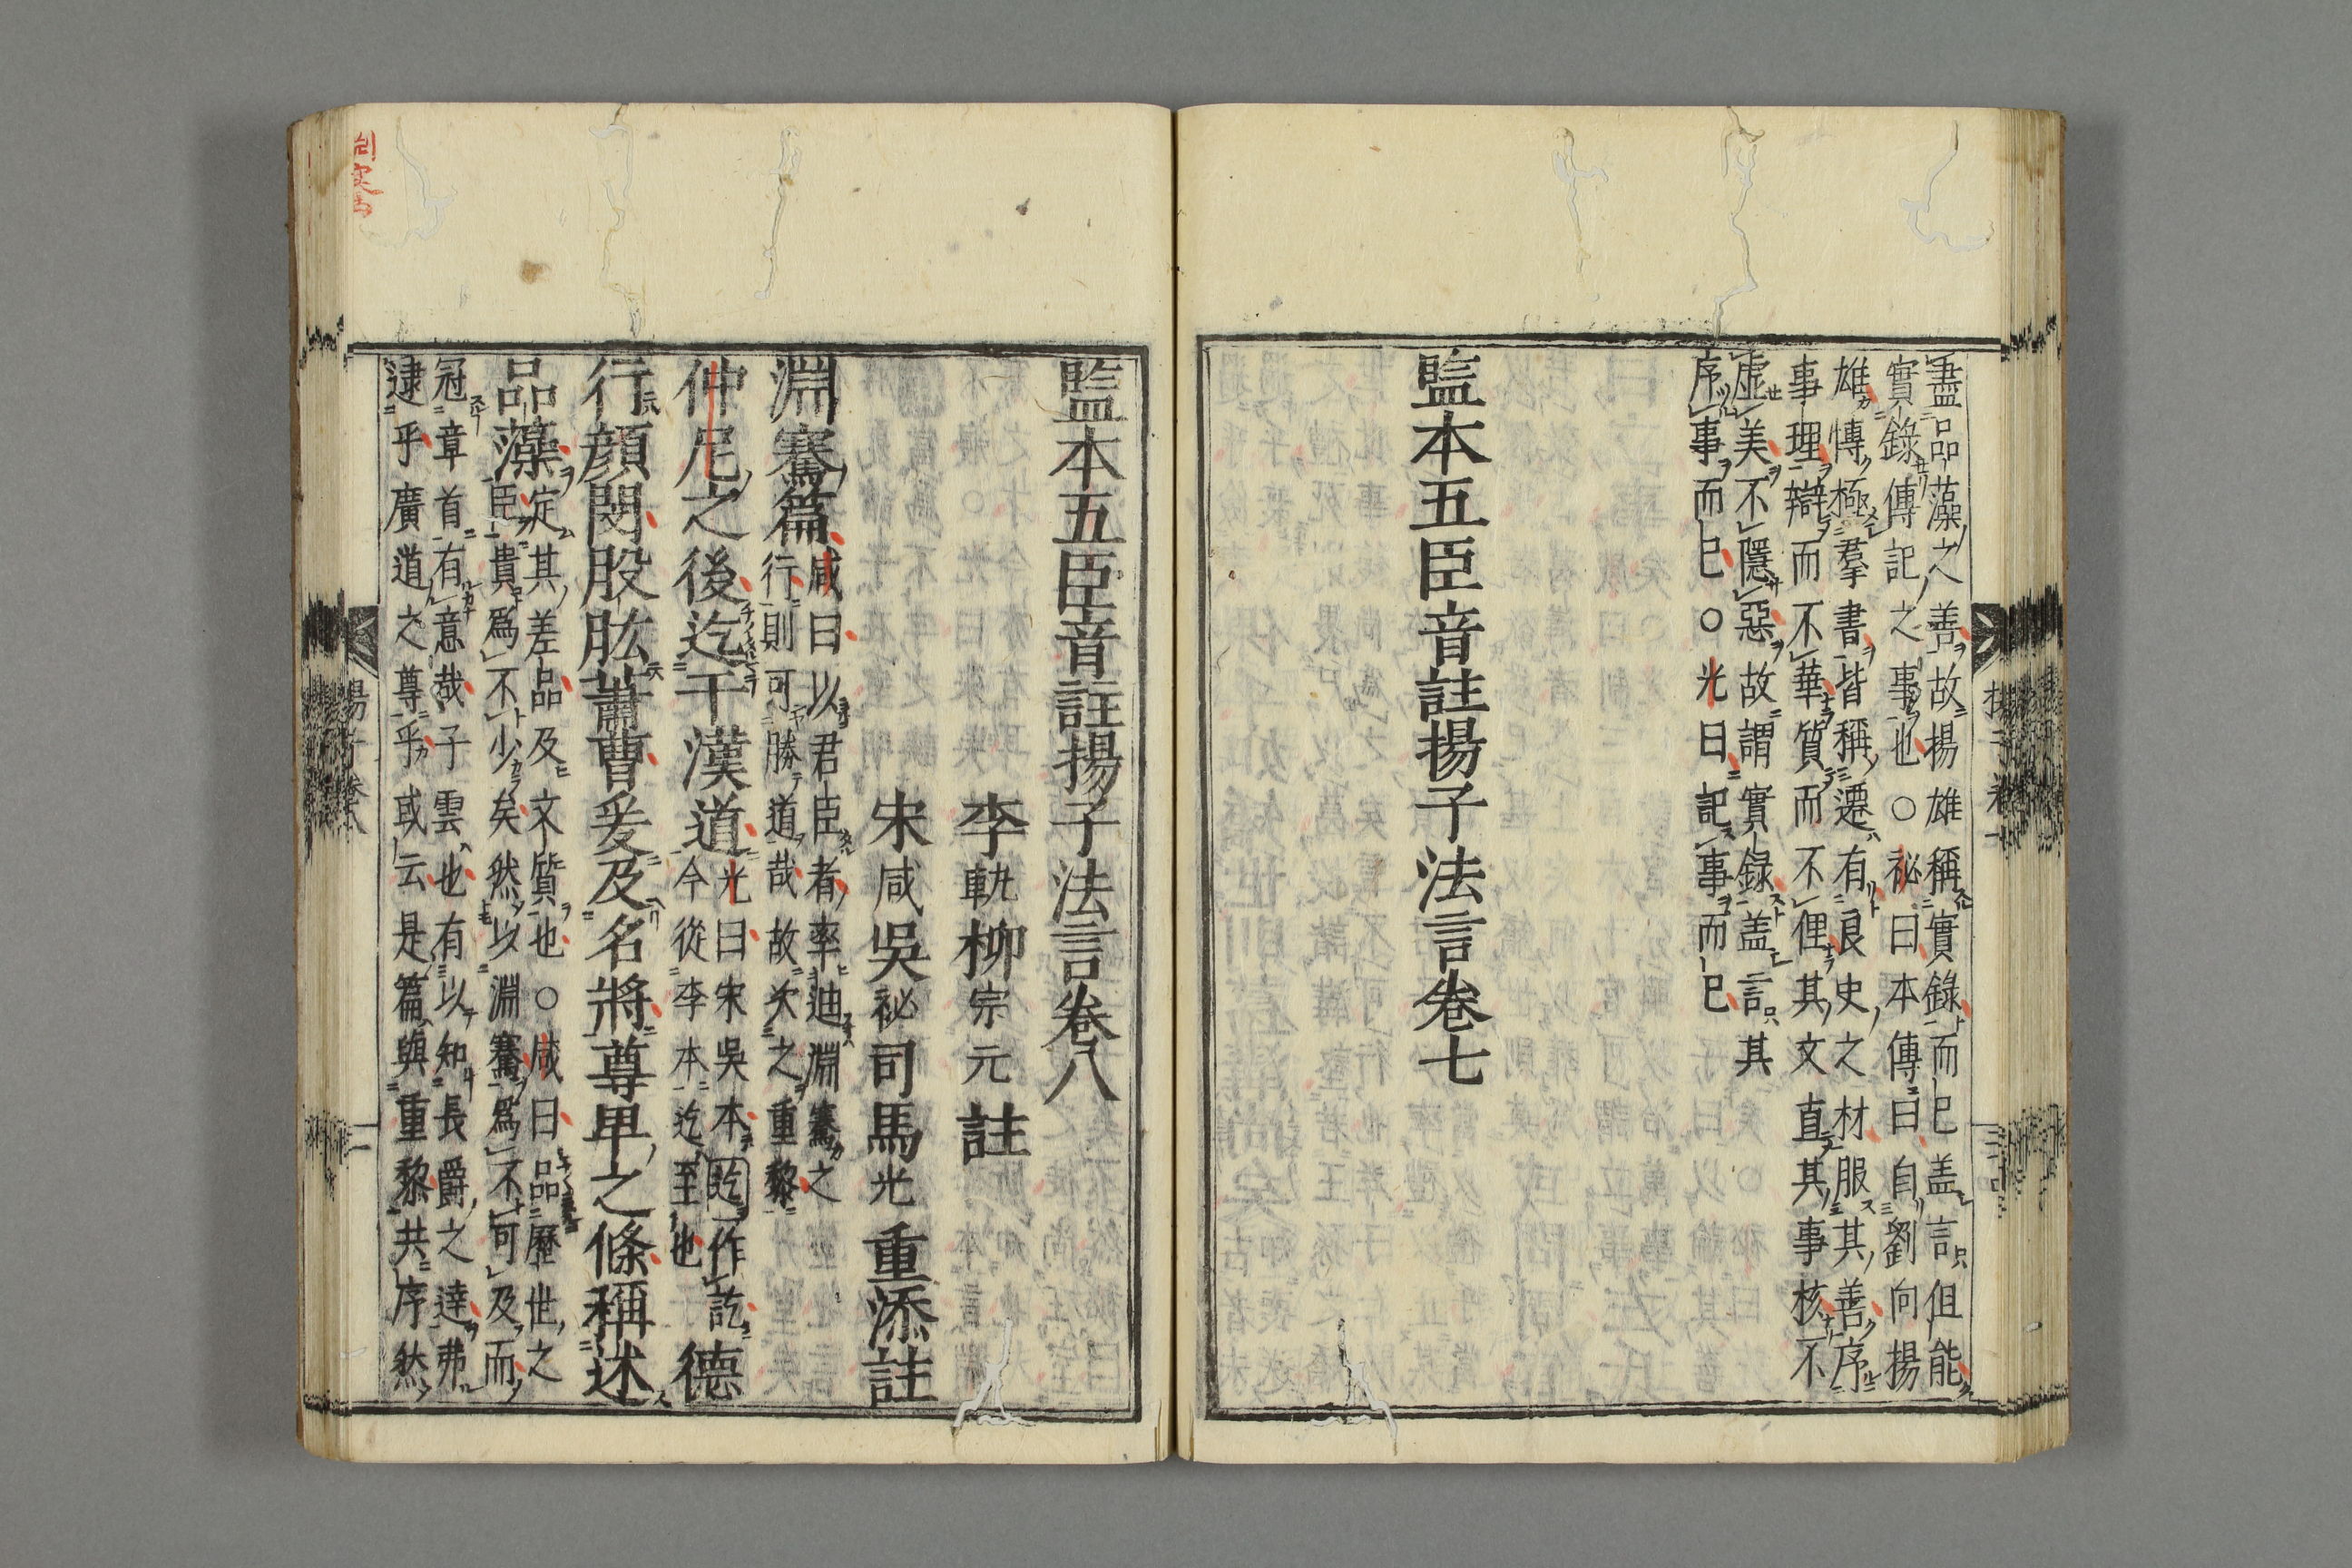 盡品藻之善故揚雄稱實錄而已盖言但能
實錄傳記之事也○祕曰本傳曰自劉向揚
雄博極羣書皆稱遷有良史之材服其善序
事理辯而不華質而不俚其文直其事核不
虛美不隱惡故謂實録盖言其
序事而已○光曰記事而已
監本五臣音註揚子法言卷七
監本五臣音註揚子法言卷八
李軌柳宗元註
宋咸吳祕司馬光重添註
淵騫篇
咸曰以君臣者率迪淵騫之
行則可勝道哉故次之重黎
仲尼之後迄于漢道
光曰宋吳本迄作訖
今從李本迄至也
德
行顏閔股肱蕭曹爰及名將尊卑之條稱述
品藻
定其差品及文質也○咸曰品歷世之
臣貴爲不少矣然以淵騫爲不可及而
冠章首有意哉子雲也有以知長爵之達弗
逮乎廣道之尊乎或云是篇與重黎共序然
揚子卷八